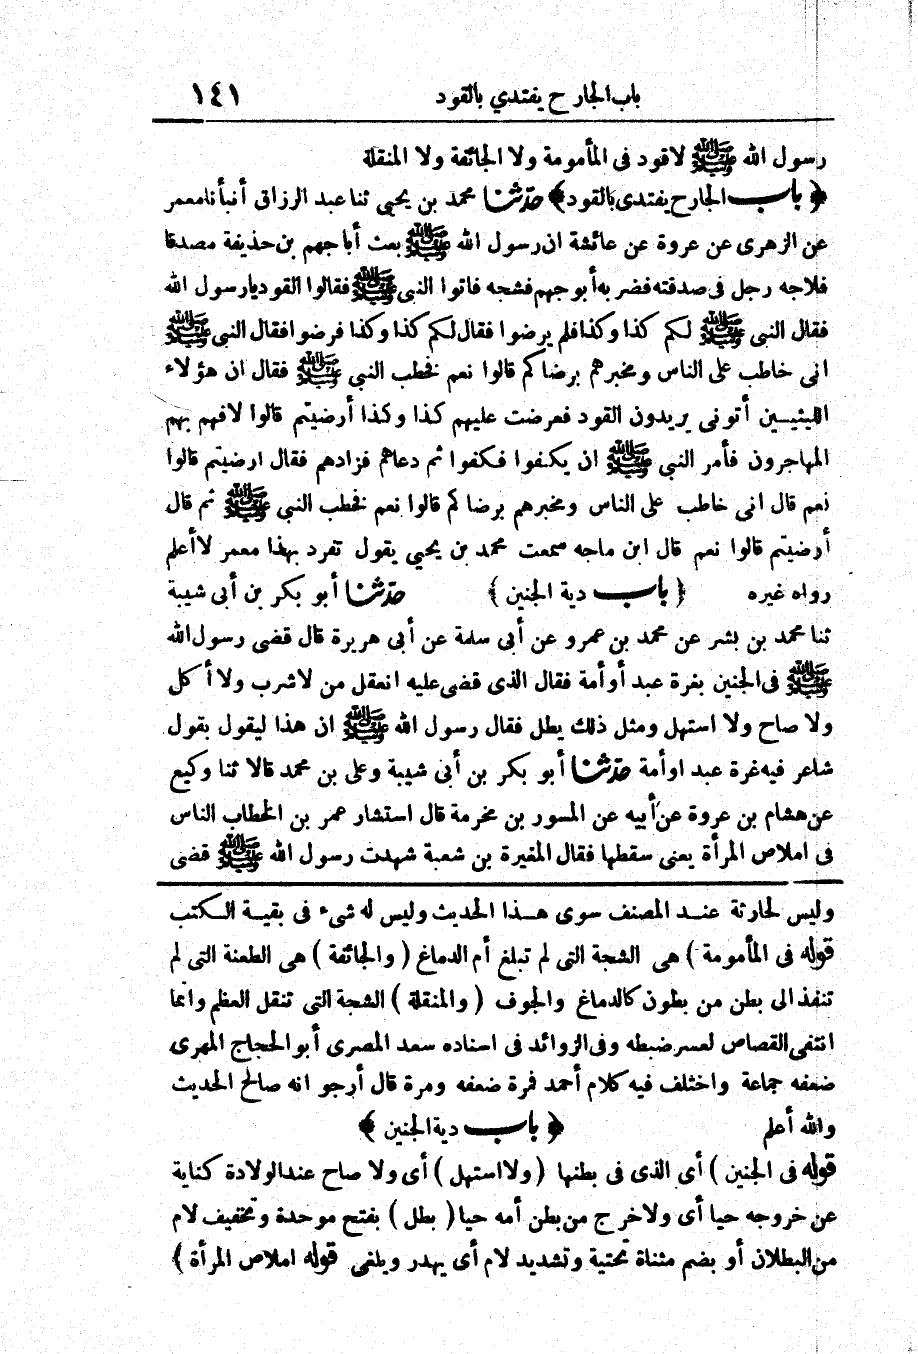 باب الجارح يفتدي بالقود ١٤١
رسول الله ﷺ لا قود فى المأمومة ولا الجائفة ولا المنقلة
﴿ باب الجارح يفتدى بالقود ﴾ حدثنا محمد بن يحيى ثنا عبد الرزاق أنبأنا معمر
عن الزهرى عن عروة عن عائشة ان رسول الله ﷺ بعث أبا جهم بن حذيفة مصدقا
فلاجه رجل فى صدقته فضربه أبو جهم فشجه فاتوا النبى ﷺ فقالوا القود يارسول الله
فقال النبى ﷺ لكم كذا وكذا فلم يرضوا فقال لكم كذا وكذا فرضوا فقال النبى ﷺ
انى خاطب على الناس ومخبرهم برضاكم قالوا نعم فخطب النبى ﷺ فقال ان هؤلاء
الليثيين أتونى يريدون القود فعرضت عليهم كذا وكذا أرضيتم قالوا لا فهم بهم
المهاجرون فأمر النبى ﷺ ان يكفوا فكفوا ثم دعاهم فزادهم فقال ارضيتم قالوا
نعم قال انى خاطب على الناس ومخبرهم برضاكم قالوا نعم فخطب النبى ﷺ ثم قال
أرضيتم قالوا نعم قال ابن ماجه سمعت محمد بن يحيى يقول تفرد بهذا معمر لا أعلم
رواه غيره ﴿ باب دية الجنين ﴾ حدثنا أبو بكر بن أبى شيبة
ثنا محمد بن بشر عن محمد بن عمرو عن أبى سلمة عن أبى هريرة قال قضى رسول الله
ﷺ فى الجنين بغرة عبد أو أمة فقال الذى قضى عليه انعقل من لا شرب ولا أكل
ولا صاح ولا استهل ومثل ذلك يطل فقال رسول الله ﷺ ان هذا ليقول بقول
شاعر فيه غرة عبد او أمة حدثنا أبو بكر بن أبى شيبة وعلى بن محمد قالا ثنا وكيع
عن هشام بن عروة عن أبيه عن المسور بن مخرمة قال استشار عمر بن الخطاب الناس
فى املاص المرأة يعنى سقطها فقال المغيرة بن شعبة شهدت رسول الله ﷺ قضى
وليس لحارثة عند المصنف سوى هذا الحديث وليس له شىء فى بقية الكتب
قوله فى المأمومة ) هى الشجة التى لم تبلغ أم الدماغ ( والجائفة ) هى الطعنة التى لم
تنفذ الى بطن من بطون كالدماغ والجوف ( والمنقلة ) الشجة التى تنقل العظم وانما
انتفى القصاص لعسر ضبطه وفى الزوائد فى اسناده سعد المصرى أبو الحجاج المهرى
ضعفه جماعة واختلف فيه كلام أحمد فمرة ضعفه ومرة قال أرجو انه صالح الحديث
والله أعلم ﴿ باب دية الجنين ﴾
قوله فى الجنين ) أى الذى فى بطنها ( ولا استهل ) أى ولا صاح عند الولادة كناية
عن خروجه حيا أى ولا خرج من بطن أمه حيا ( بطل ) بفتح موحدة وتخفيف لام
من البطلان أو بضم مثناة تحتية وتشديد لام أى يهدر ويلغى قوله املاص المرأة )